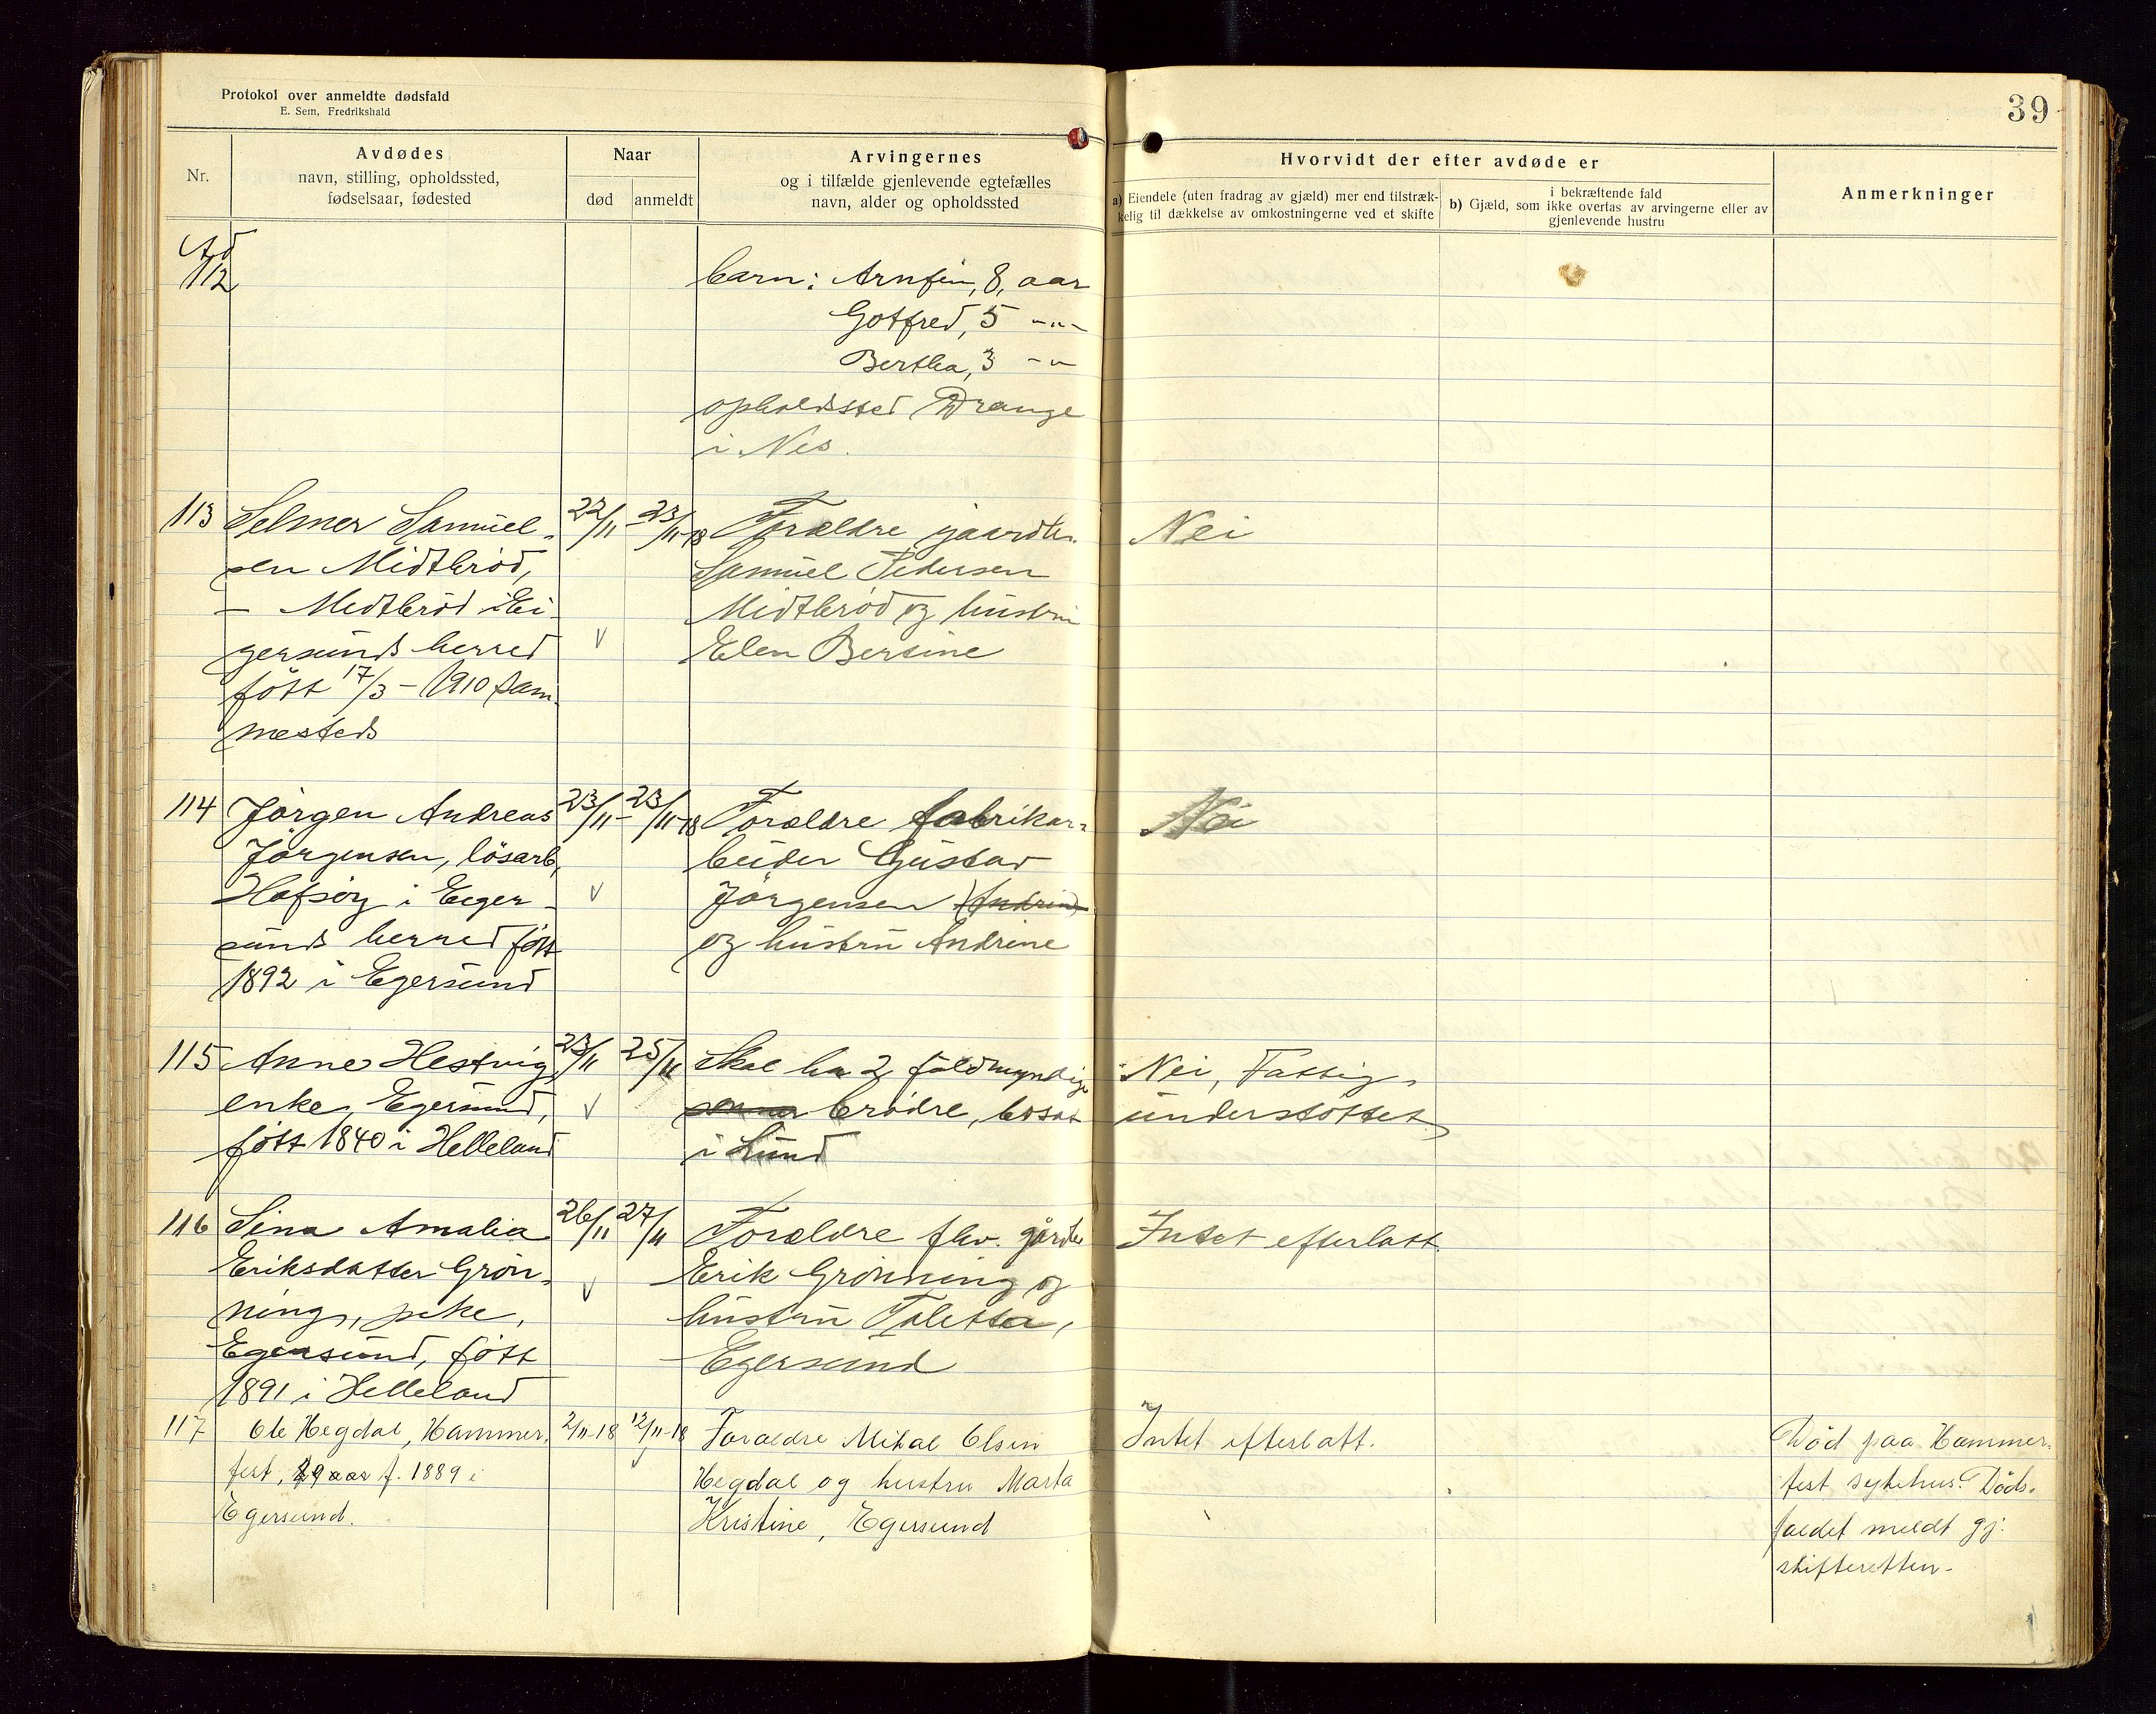 Protokol over anmeldte dødsfald
E. Sem, Fredrikshald
39
Nr.
Avdødes
navn, stilling, opholdssted,
fødselsaar, fødested
Naar
død
anmeldt
Arvingernes
og i tilfælde gjenlevende egtefælles
navn, alder og opholdssted
Hvorvidt der efter avdøde er
a) Eiendele (uten fradrag av gjæld) mer end tilstræk-
kelig til dækkelse av omkostningerne ved et skifte
i bekræftende fald
b) Gjæld, som ikke overtas av arvingerne eller av
gjenlevende hustru
Anmerkninger
Ad
112
barn: Arnfin, 8, aar
Gotfred, 5 -"-
Bertha, 3 -"-
opholdssted Drange
i Nes.
113
Selmer Samuel-
sen Midtbröd,
- Midtbröd i Ei-
gersunds herred
födt 17/3-1910 sam-
mesteds
22/11
23/11-18
Forældre gaardbr.
Samuel Pedersen
Midtbröd og hustru
Elen Bersine
Nei
114
Jörgen Andreas
Jörgensen, lösarb,
Hafsöy i Eiger-
sunds herred födt
1892 i Egersund
23/11-
23/11-18
Forældre fabrikar-
beider Gustav
Jörgensen (Andrine)
og hustru Andrine
Nei
115
Anne Hestvig
enke, Egersund,
födt 1840 i Helleland
23/11
25/11
Skal ha 2 fuldmyndige
brödre, bosat
i Lund
Nei, Fattig-
understöttet
116
Sina Amalia
Eriksdatter Grön-
ning, pike,
Egersund, född
1891 i Helleland
26/11
27/11
Forældre fhv. gårdbr
Erik Grönning og
hustru Taletta,
Egersund
Intet efterlatt.
117
Ole Hegdal, Hammer-
fest, 29 aar f. 1889 i
Egersund.
2/11-18
12/11-18
Forældre Mikal Olsen
Hegdal og hustru Marta
Kristine, Egersund
Intet efterlatt.
Död paa Hammer-
fest sykehus. Döds-
faldet meldt gj.
skifteretten-